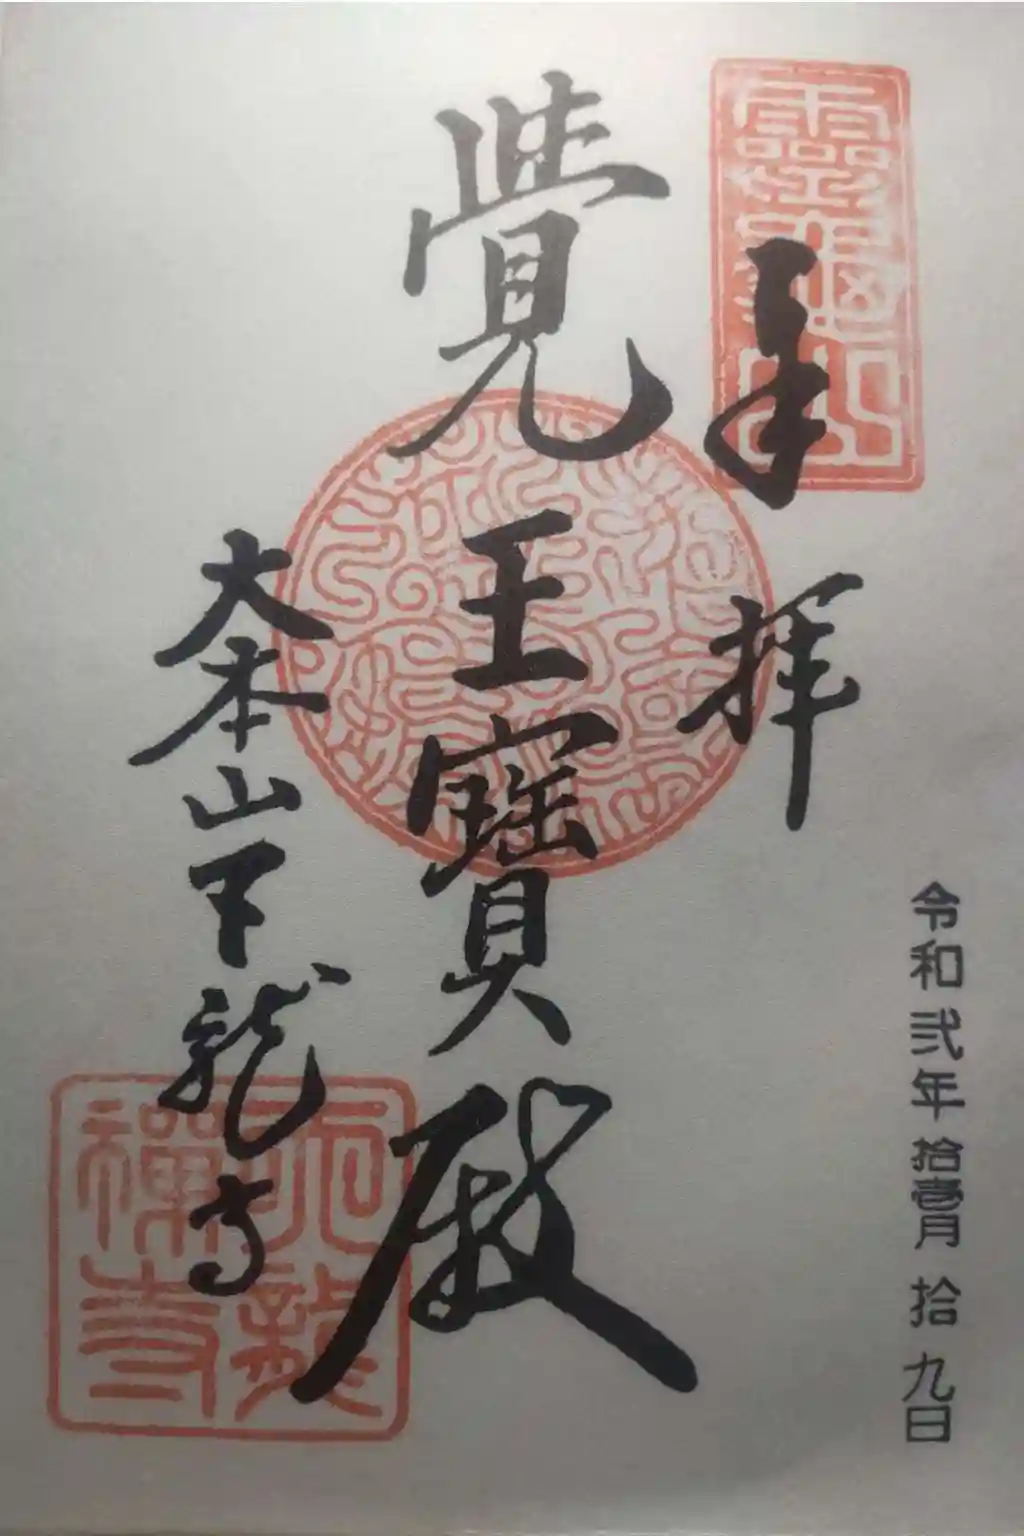 奉拝
令和弐年拾壹月拾九日
覺王寶殿
大本山天龍寺
靈龜山
天龍
禅寺